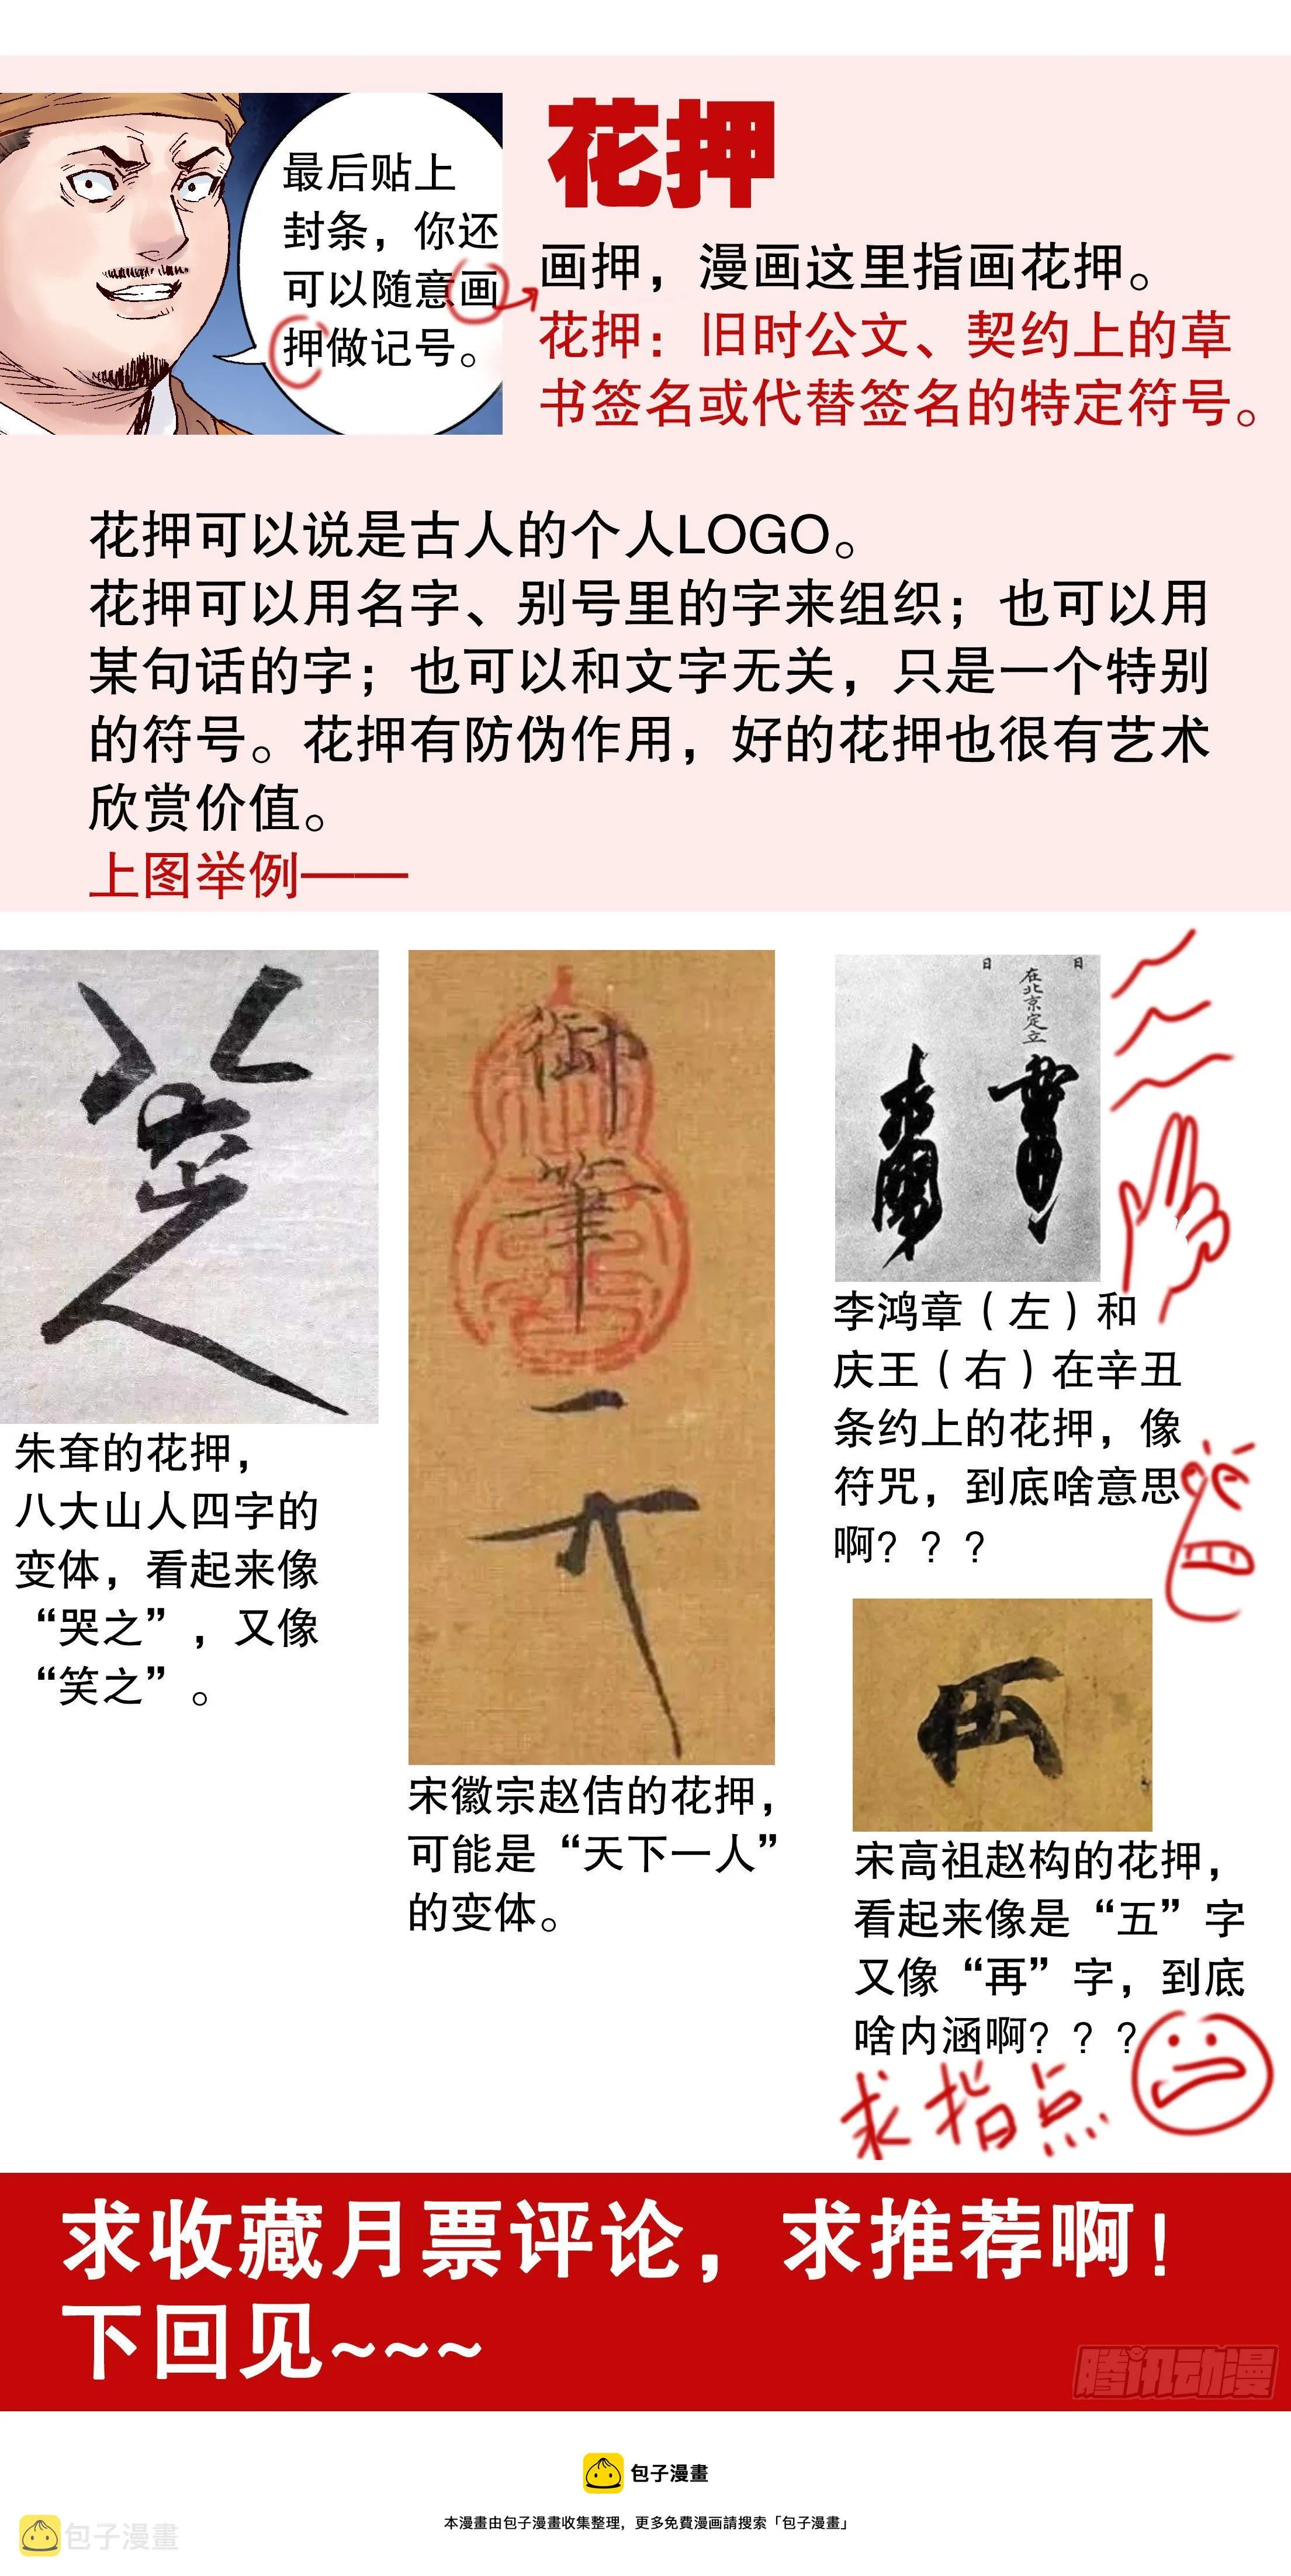 最后贴上
封条，你还
可以随意画
押做记号。
花押
画押，漫画这里指画花押。
花押：旧时公文、契约上的草
书签名或代替签名的特定符号。
花押可以说是古人的个人LOGO。
花押可以用名字、别号里的字来组织；也可以用
某句话的字；也可以和文字无关，只是一个特别
的符号。花押有防伪作用，好的花押也很有艺术
欣赏价值。
上图举例——
朱耷的花押，
八大山人四字的
变体，看起来像
“哭之”，又像
“笑之”。
御筆
宋徽宗赵佶的花押，
可能是“天下一人”
的变体。
日
日
在北京定立
李鸿章（左）和
庆王（右）在辛丑
条约上的花押，像
符咒，到底啥意思
啊？？？
宋高祖赵构的花押，
看起来像是“五”字
又像“再”字，到底
啥内涵啊？？？
求指点
求收藏月票评论，求推荐啊！
下回见~~~
腾讯动漫
包子漫畫
本漫畫由包子漫畫收集整理，更多免費漫画請搜索「包子漫畫」
包子漫畫